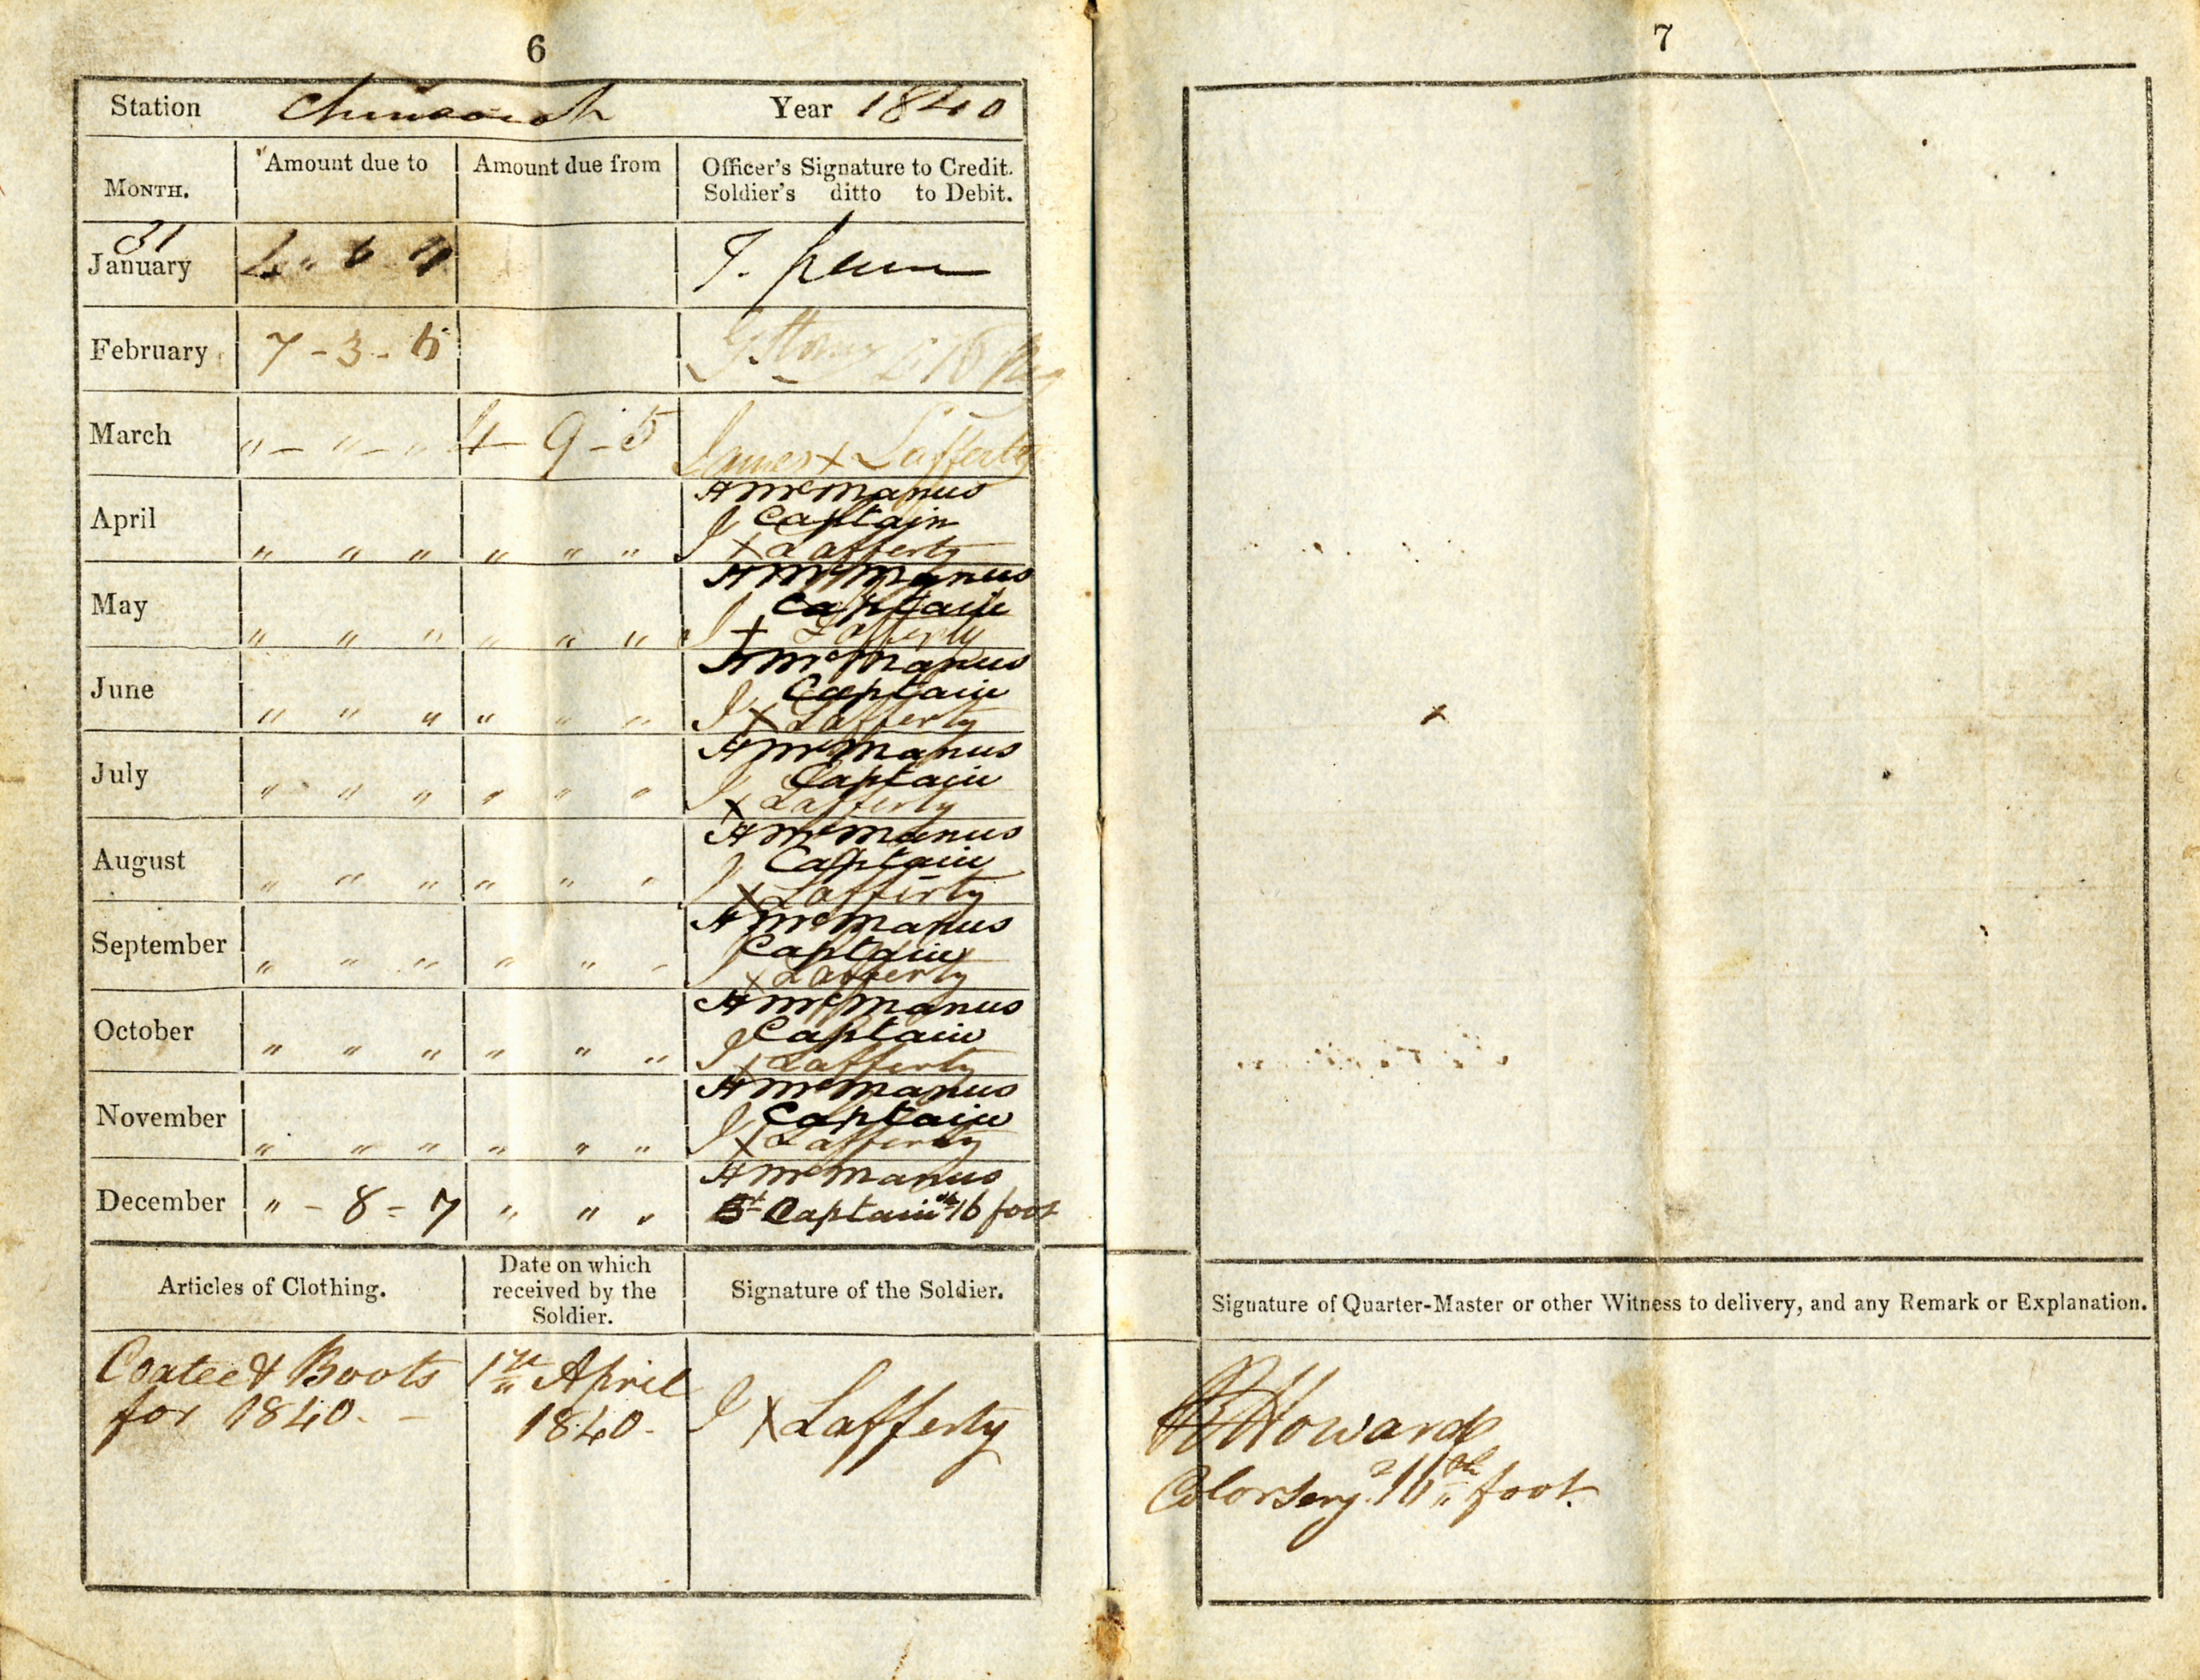 6
Station Chinsurah Year 1840
MONTH. Amount due to Amount due from Officer's Signature to Credit.
Soldier's ditto to Debit.
31
January 4 " 6 4
February 7 - 3 - 6
March " - " - " 4 - 9 - 5 James x Lafferty
April " " " " " " A McManus
Captain
J x Lafferty
May " " " " " " A McManus
Captain
J x Lafferty
June " " " " " " A McManus
Captain
J x Lafferty
July " " " " " " A McManus
Captain
J x Lafferty
August " " " " " " A McManus
Captain
J x Lafferty
September " " " " " " A McManus
Captain
J x Lafferty
October " " " " " " A McManus
Captain
J x Lafferty
November " " " " " " A McManus
Captain
J x Lafferty
December " - 8 = 7 " " " A McManus
Bt Captain 16 foot
Articles of Clothing. Date on which
received by the
Soldier. Signature of the Soldier.
Coatee & Boots 1st April
for 1840. - 1840. J x Lafferty
7
Signature of Quarter-Master or other Witness to delivery, and any Remark or Explanation.
Howard
Color Serjt 16th foot.